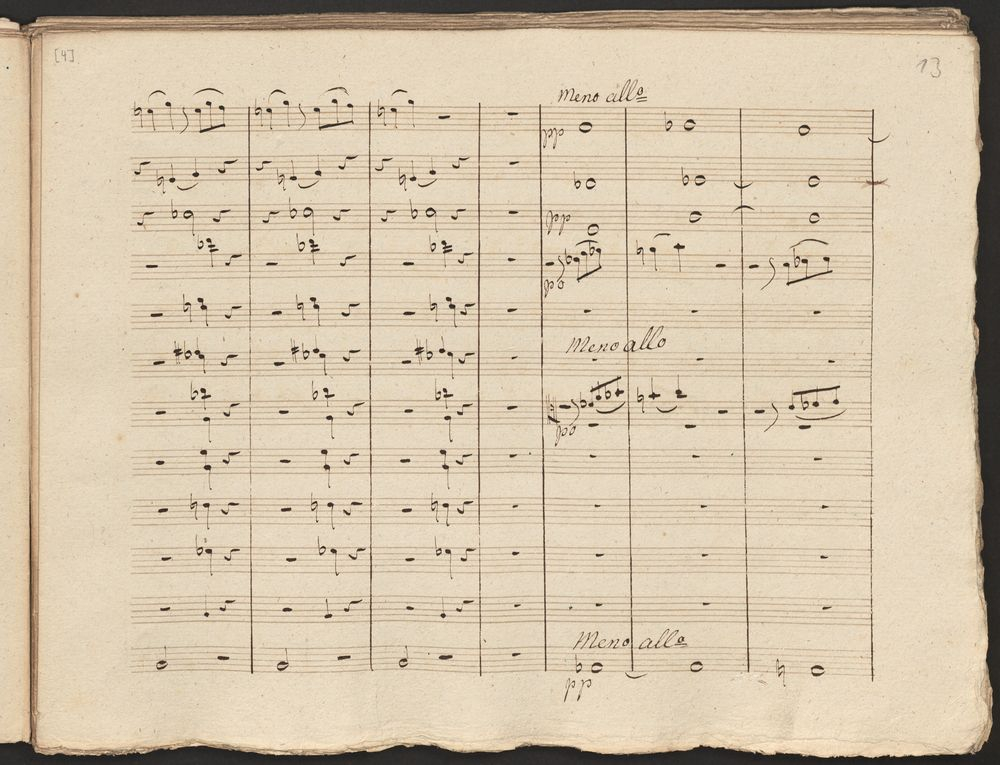 [4]
13
Meno allo
pp
pp
po
Meno allo
po
Meno allo
pp